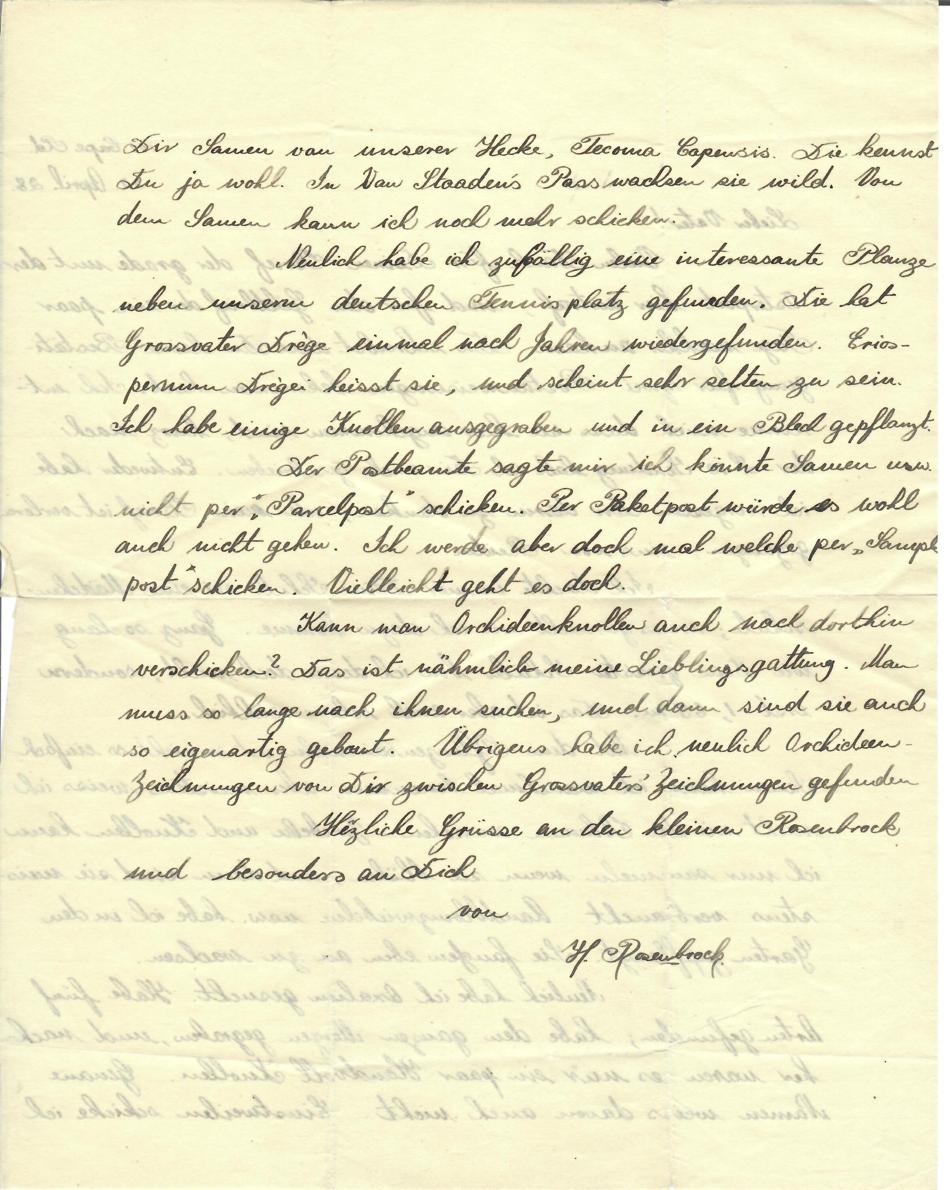 Dir Samen von unserer Hecke, Tecoma Capensis. Die kennst
Du ja wohl. In Van Staaden's Pass wachsen sie wild. Von
dem Samen kann ich noch mehr schicken.
Neulich habe ich zufällig eine interessante Planze
neben unserm deutschen Tennisplatz gefunden. Die hat
Grossvater Drège einmal nach Jahren wiedergefunden. Erios-
permum Drègei heisst sie, und scheint sehr selten zu sein.
Ich habe einige Knollen ausgegraben und in ein Blech gepflanzt.
Der Postbeamte sagte mir ich könnte Samen usw.
nicht per „Parcelpost" schicken. Per Paketpost würde es wohl
auch nicht gehen. Ich werde aber doch mal welche per „Sample
post" schicken. Vielleicht geht es doch.
Kann man Orchideenknollen auch nach dorthin
verschicken? Das ist nähmlich meine Lieblingsgattung. Man
muss so lange nach ihnen suchen, und dann sind sie auch
so eigenartig gebaut. Übrigens habe ich neulich Orchideen-
Zeichnungen von Dir zwischen Grossvaters' Zeichnungen gefunden
Herzliche Grüsse an den kleinen Rosenbrock
und besonders an Dich
von
H. Rosenbrock.